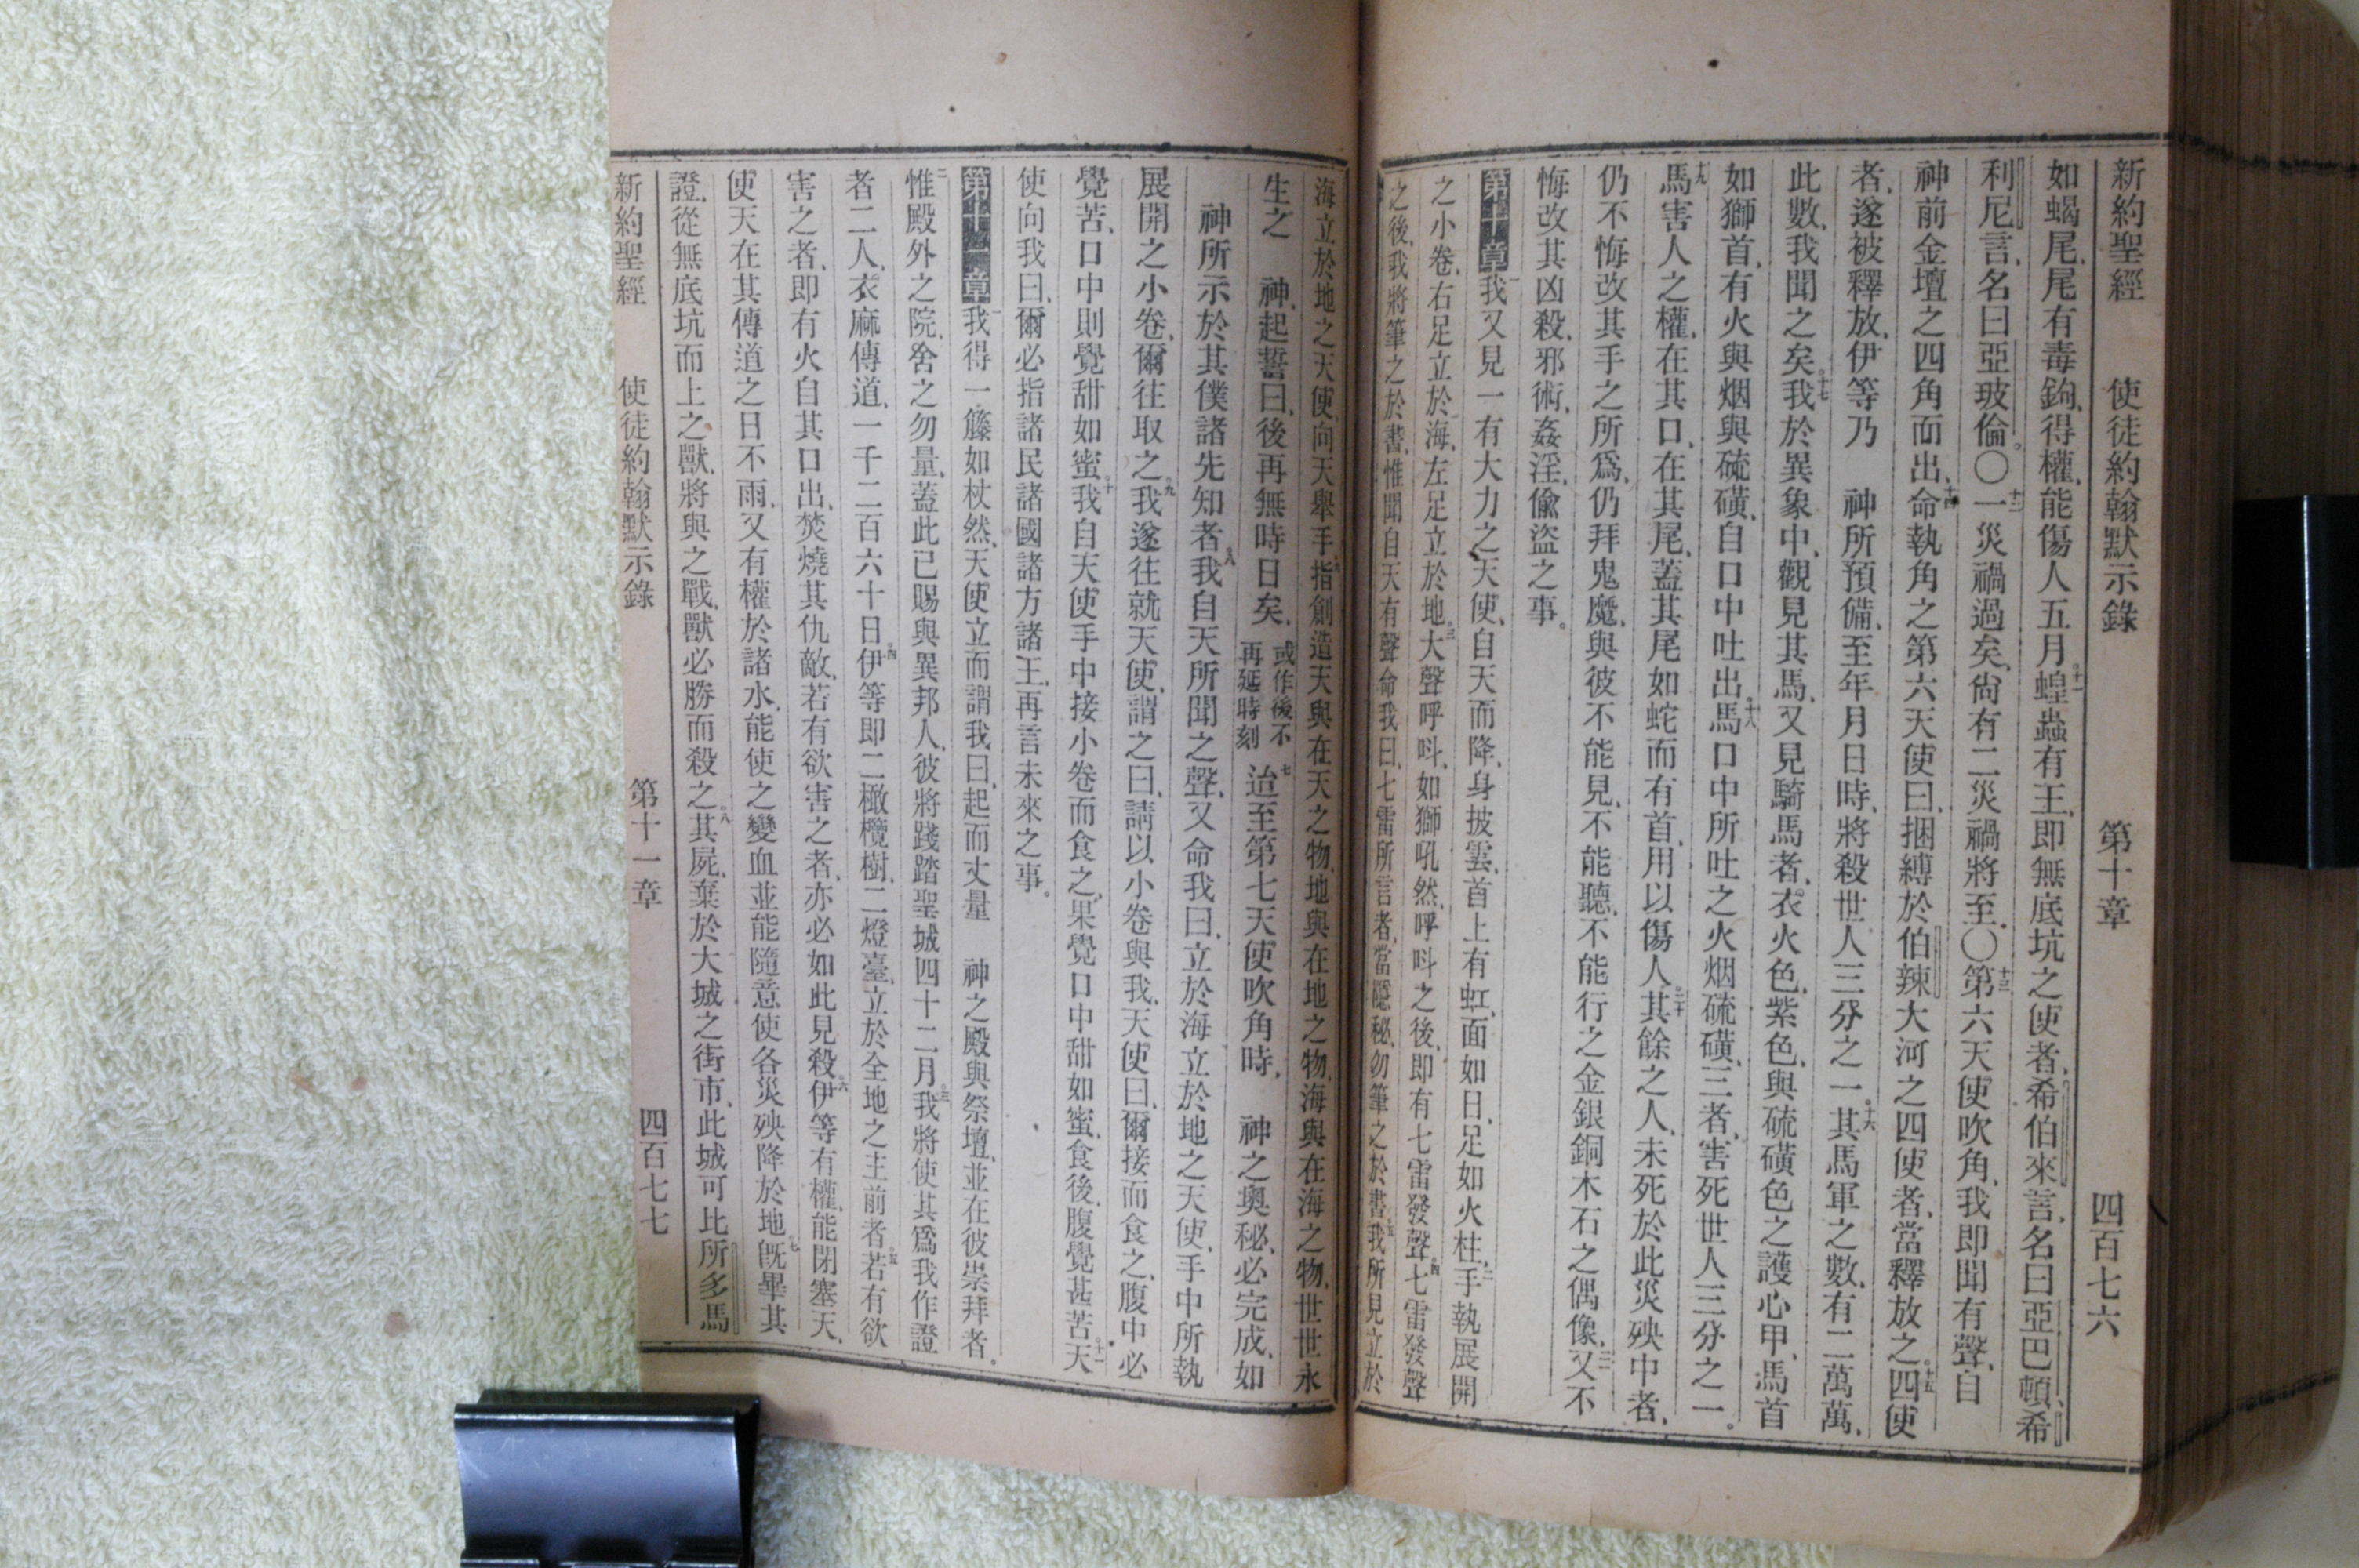 新約聖經 使徒約翰默示錄 第十章 四百七六
如蝎尾、尾有毒鉤、得權、能傷人五月。十一蝗蟲有王、即無底坑之使者、希伯來言、名曰亞巴頓、希
利尼言、名曰亞玻倫。〇十二一災禍過矣、尙有二災禍將至。〇十三第六天使吹角、我即聞有聲、自
神前金壇之四角而出、十四命執角之第六天使曰、捆縛於伯辣大河之四使者、當釋放之。十五四使
者、遂被釋放、伊等乃 神所預備、至年月日時、將殺世人三分之一。十六其馬軍之數、有二萬萬、
此數、我聞之矣。十七我於異象中、觀見其馬、又見騎馬者、衣火色、紫色、與硫磺色之護心甲、馬首
如獅首、有火與烟與硫磺、自口中吐出。十八馬口中所吐之火烟硫磺、三者、害死世人三分之一。
十九馬害人之權、在其口、在其尾、蓋其尾如蛇而有首、用以傷人。二十其餘之人、未死於此災殃中者、
仍不悔改其手之所爲、仍拜鬼魔、與彼不能見、不能聽、不能行之金銀銅木石之偶像、二一又不
悔改其凶殺、邪術、姦淫、偸盜之事。
第十章一我又見一有大力之天使、自天而降、身披雲、首上有虹、面如日、足如火柱、二手執展開
之小卷、右足立於海、左足立於地。三大聲呼呌、如獅吼然、呼呌之後、即有七雷發聲。四七雷發聲
之後、我將筆之於書、惟聞自天有聲命我曰、七雷所言者、當隱秘、勿筆之於書。五我所見立於
海立於地之天使、向天舉手、六指創造天與在天之物、地與在地之物、海與在海之物、世世永
生之 神、起誓曰、後再無時日矣、或作後不再延時刻七迨至第七天使吹角時、 神之奧秘、必完成、如
神所示於其僕諸先知者。八我自天所聞之聲、又命我曰、立於海立於地之天使、手中所執
展開之小卷、爾往取之。九我遂往就天使、謂之曰、請以小卷與我、天使曰、爾接而食之、腹中必
覺苦、口中則覺甜如蜜。十我自天使手中接小卷而食之、果覺口中甜如蜜、食後、腹覺甚苦。十一天
使向我曰、爾必指諸民諸國諸方諸王、再言未來之事。
第十一章一我得一籐如杖然、天使立而謂我曰、起而丈量 神之殿與祭壇、並在彼崇拜者。
二惟殿外之院、舍之勿量、蓋此已賜與異邦人、彼將踐踏聖城四十二月。三我將使其爲我作證
者二人、衣麻傳道、一千二百六十日。四伊等即二橄欖樹、二燈臺、立於全地之主前者。五若有欲
害之者、即有火自其口出、焚燒其仇敵、若有欲害之者、亦必如此見殺。六伊等有權、能閉塞天、
使天在其傳道之日不雨、又有權於諸水、能使之變血、並能隨意使各災殃降於地。七旣畢其
證、從無底坑而上之獸、將與之戰、獸必勝而殺之。八其屍、棄於大城之街市、此城可比所多馬
新約聖經 使徒約翰默示錄 第十一章 四百七七